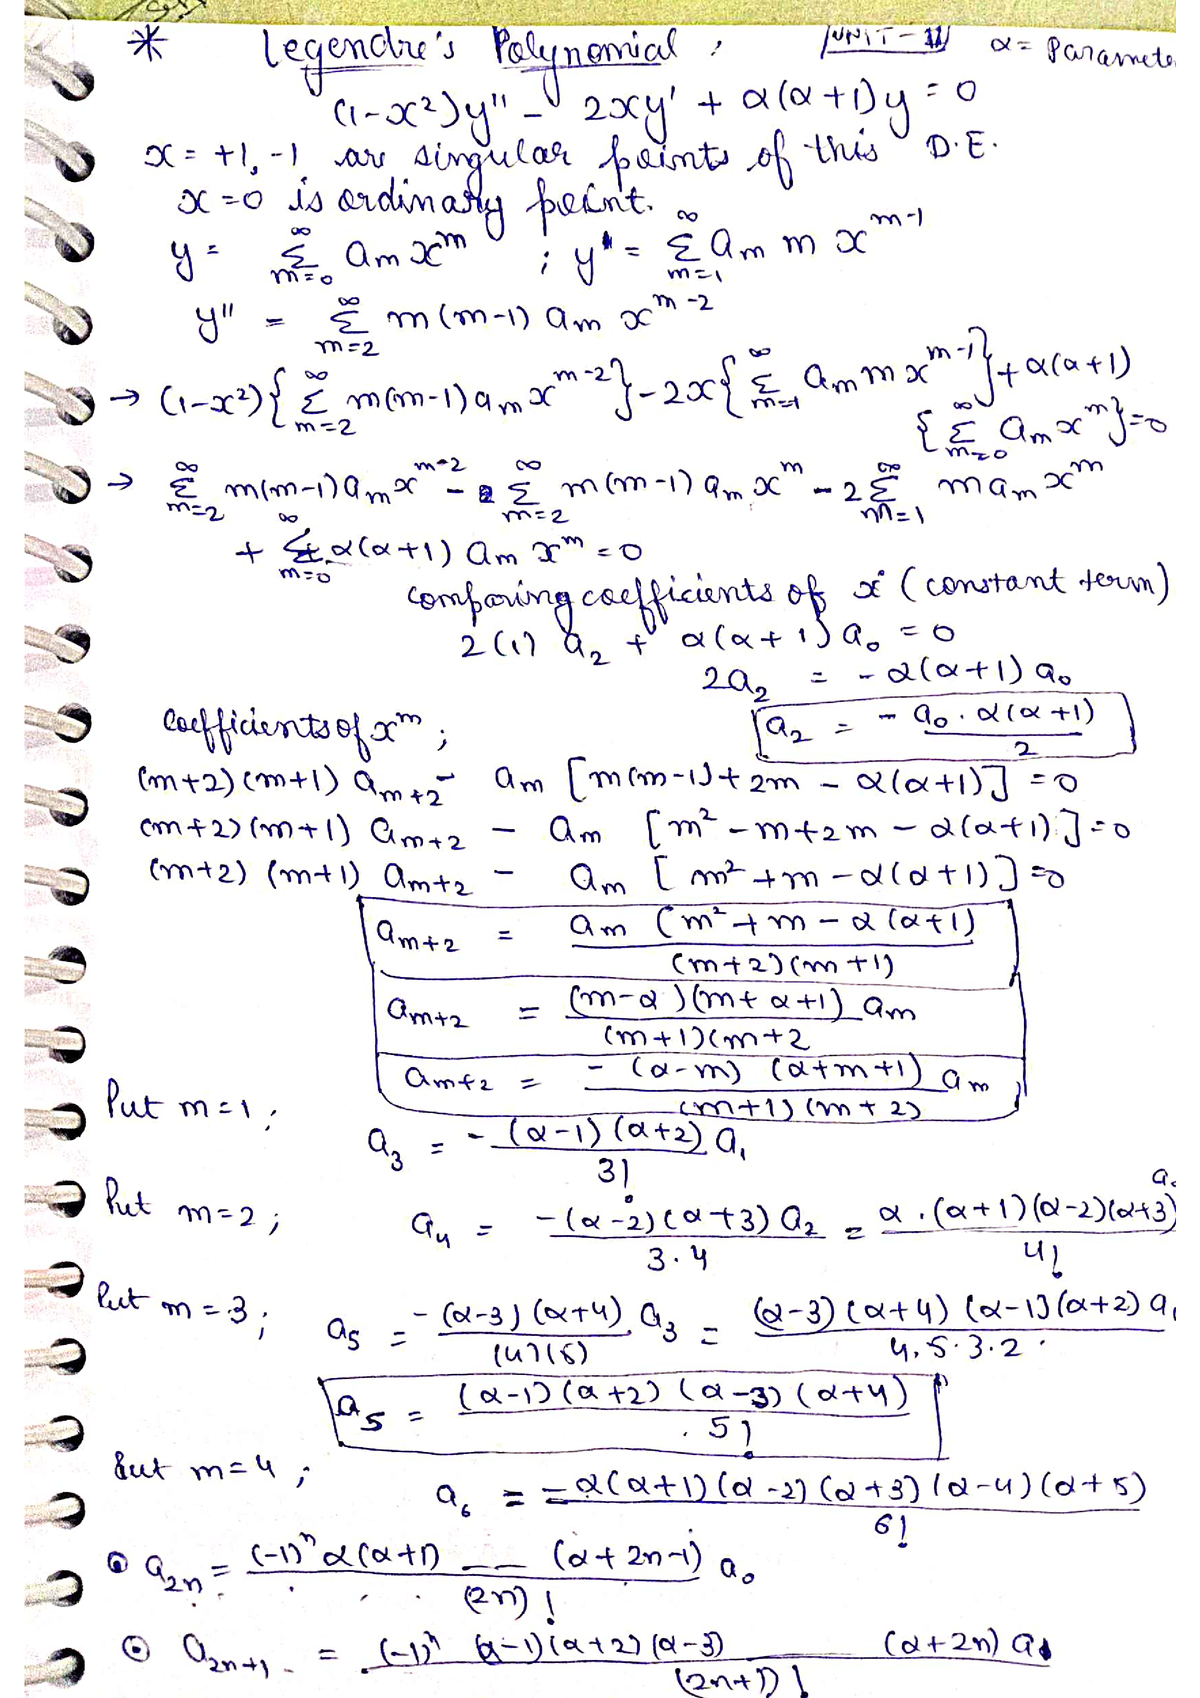 * Legendre's Polynomial : UNIT-II α = Paramete
(1-x²)y'' - 2xy' + α(α+1)y = 0
x = +1, -1 are singular points of this D.E.
x=0 is ordinary point.
y = ∞Σm=0 am x^m ; y' = ∞Σm=1 am m x^m-1
y'' = ∞Σm=2 m(m-1) am x^m-2
→ (1-x²){∞Σm=2 m(m-1) am x^m-2} - 2x{∞Σm=1 am m x^m-1} + α(α+1)
{∞Σm=0 am x^m} = 0
→ ∞Σm=2 m(m-1) am x^m-2 - ∞Σm=2 m(m-1) am x^m - 2 ∞Σm=1 m am x^m
+ ∞Σm=0 α(α+1) am x^m = 0
comparing coefficients of x° (constant term)
2(1) a2 + α(α+1) a0 = 0
2a2 = -α(α+1) a0
coefficients of x^m ; a2 = - a0 . α(α+1) / 2
(m+2)(m+1) am+2 - am [m(m-1)+2m - α(α+1)] = 0
(m+2)(m+1) am+2 - am [m² - m+2m - α(α+1)] = 0
(m+2) (m+1) am+2 - am [m² + m - α(α+1)] = 0
am+2 = am (m² + m - α(α+1) / (m+2)(m+1)
am+2 = (m-α)(m+α+1) am / (m+1)(m+2
am+2 = - (α-m) (α+m+1) am / (m+1)(m+2)
Put m=1 ;
a3 = - (α-1)(α+2) a1 / 3!
Put m=2 ; a4 = -(α-2)(α+3) a2 / 3.4 = α.(α+1)(α-2)(α+3) a0 / 4!
Put m=3 ; a5 = -(α-3)(α+4) a3 / (4)(5) = (α-3)(α+4)(α-1)(α+2) a1 / 4.5.3.2
a5 = (α-1)(α+2)(α-3)(α+4) / 5!
But m=4 ;
a6 = = α(α+1)(α-2)(α+3)(α-4)(α+5) / 6!
a2n = (-1)^n α(α+1) _ __ (α+2n-1) a0 / (2n)!
a2n+1 = (-1)^n (α-1)(α+2)(α-3) (α+2n) a1 / (2n+1)!